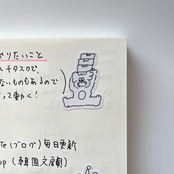 やりたいこと
ルチタスクで、
たいものもあるので
って動く!
te(ブログ)毎日更新
op(韓国文房)